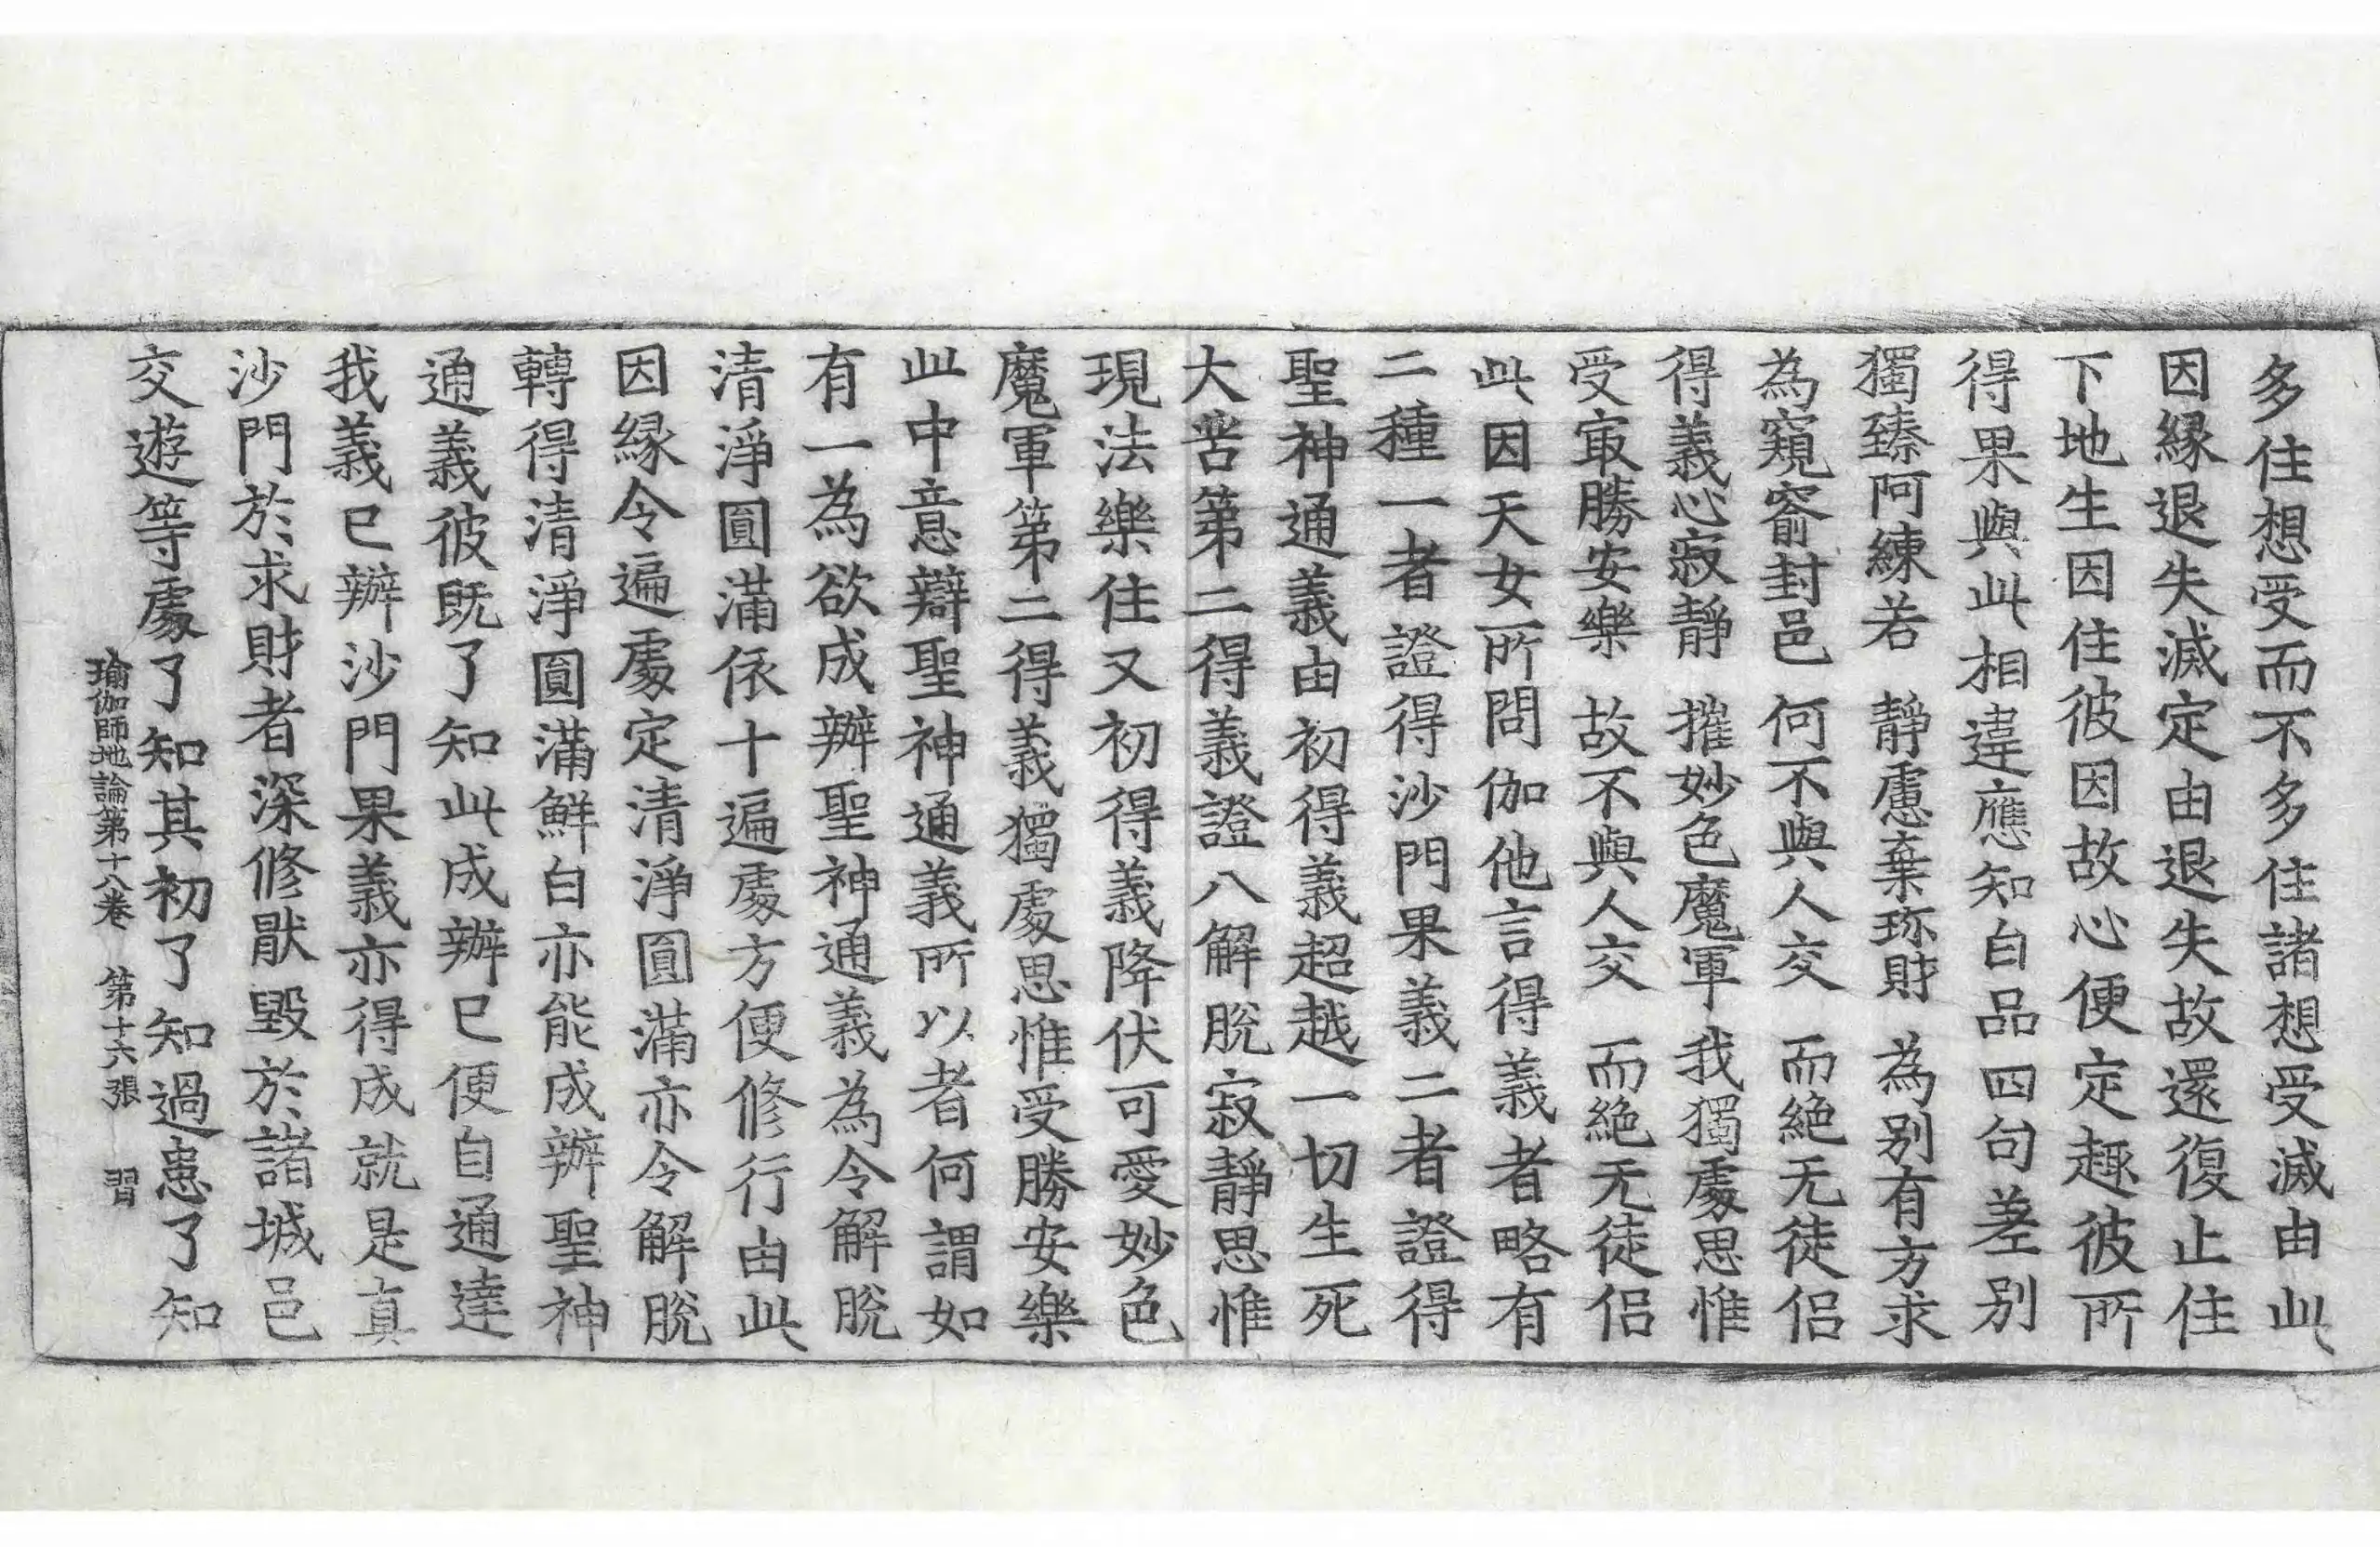 多住想受而不多住諸想受滅由此
因緣退失滅定由退失故還復止住
下地生因住彼因故心便定趣彼所
得果與此相違應知白品四句差別
獨臻阿練若　靜慮棄珎財　為別有方求
為窺窬封邑　何不與人交　而絶无徒侶
得義心寂靜　摧妙色魔軍　我獨處思惟
受㝡勝安樂　故不與人交　而絶无徒侶
此因天女所問伽他言得義者略有
二種一者證得沙門果義二者證得
聖神通義由初得義超越一切生死
大苦第二得義證八解脫寂靜思惟
現法樂住又初得義降伏可愛妙色
魔軍第二得義獨處思惟受勝安樂
此中意辯聖神通義所以者何謂如
有一為欲成辦聖神通義為令解脫
清淨圓滿依十遍處方便修行由此
因緣令遍處定清淨圓滿亦令解脫
轉得清淨圓滿鮮白亦能成辦聖神
通義彼既了知此成辦已便自通達
我義已辦沙門果義亦得成就是真
沙門於求財者深修猒毀於諸城邑
交遊等處了知其初了知過患了知
瑜伽師地論第十八卷　第十六張　習